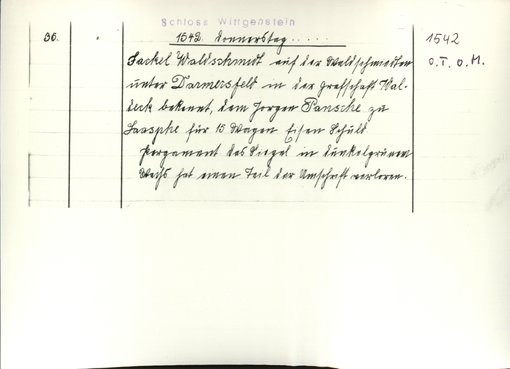 Schloss Wittgenstein
36.
1542 Donnerstag . . . . .
1542
o. T. o. M.
Jackel Waldschmidt auf der Waldschmitten
unter Darmersfeld in der Grafschaft Wal-
deck bekennt, dem Jorgen Pansche zu
Laasphe für 15 Wagen Eisen Schuld
Pergament das Siegel in dunkelgrünem
Wachs hat einen Teil der Umschrift verloren.